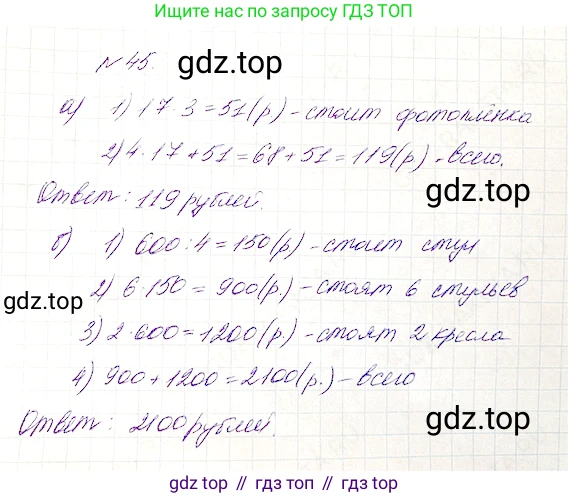 Ищите нас по запросу ГДЗ ТОП
№45.
gdz.top
а) 1) 17·3=51(р)-стоит фотоплёнка
2) 4·17+51=68+51=119(р)-всего.
gdz.top
Ответ: 119 рублей.
б) 1) 600:4=150(р)-стоит стул
2) 6·150=900(р)-стоят 6 стульев
gdz.top
3) 2·600=1200(р.)-стоят 2 кресла
4) 900+1200=2100(р.)-всего
Ответ: 2100 рублей.
gdz.top
gdz top // гдз топ // gdz top // гдз топ